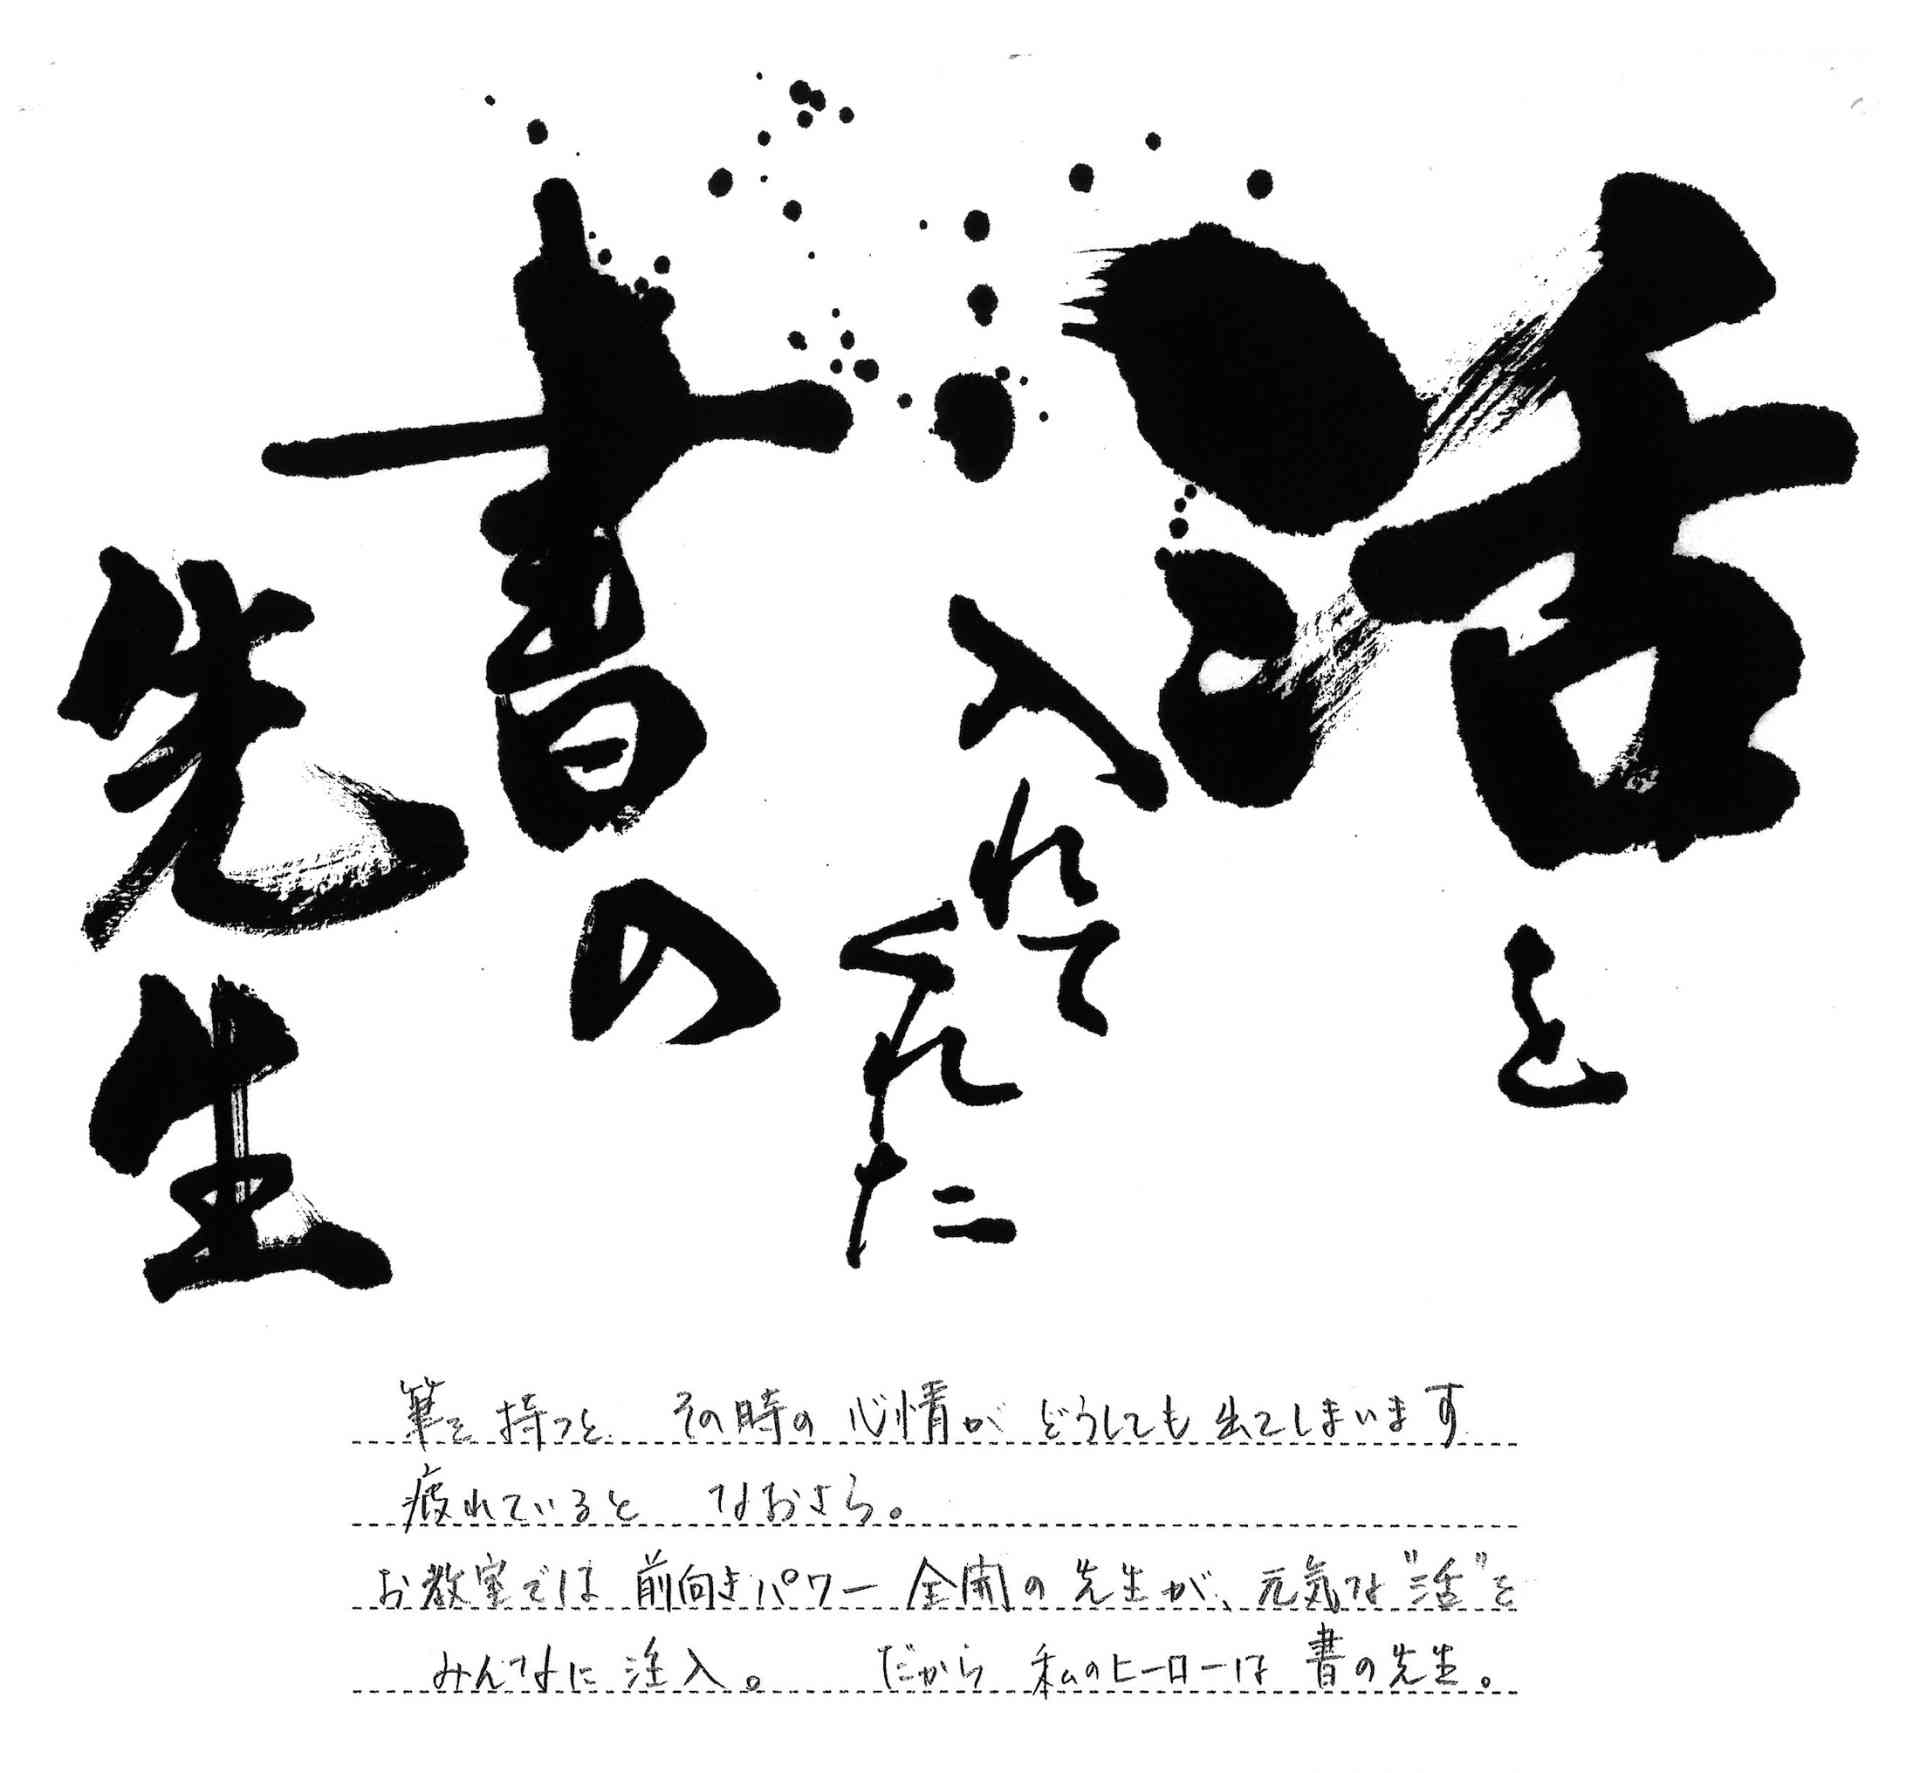 活を
入れて
くれた
書の
先生
筆を持つと その時の心情が どうしても出てしまいます
疲れていると なおさら。
お教室では 前向きパワー全開の先生が、元気な"活"を
みんなに注入。 だから 私のヒーローは 書の先生。